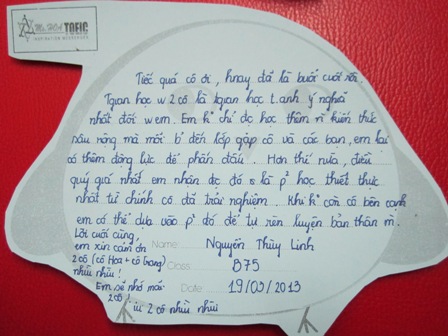 Ms Hoa TOEIC
INSPIRATION MESSENGER
Tiếc quá cô ơi, hnay đã là buổi cuối rồi.
Tgian học w 2 cô là tgian học t.anh ý nghĩa
nhất đối w em. Em k chỉ đc học thêm n kiến thức
sâu rộng mà mỗi b đến lớp gặp cô và các bạn, em lại
có thêm động lực để phấn đấu. Hơn thế nữa, điều
quý giá nhất em nhận đc đó e là p² học thiết thực
nhất từ chính cô đã trải nghiệm. Khi k còn cô bên cạnh
em có thể dựa vào p² đó để tự rèn luyện bản thân m.
Lời cuối cùng,
em xin cảm ơn Name: Nguyễn Thùy Linh
2 cô (cô Hoa + cô Giang) Class: B75
nhìu nhìu! Date: 19/03/2013
Em sẽ nhớ mãi
2 cô.
iu 2 cô nhìu nhìu